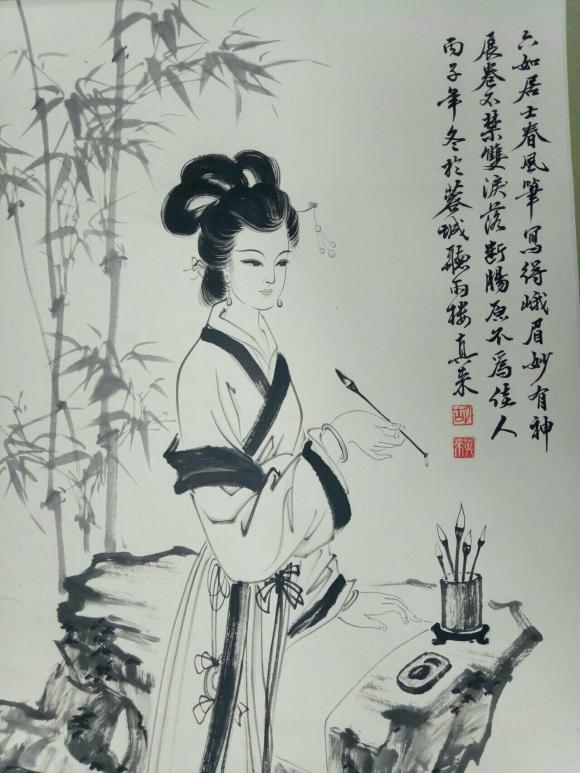 六如居士春風筆寫得峨眉妙有神
展卷不禁雙淚落斷腸原不為佳人
丙子年冬於蓉城聽雨樓真來